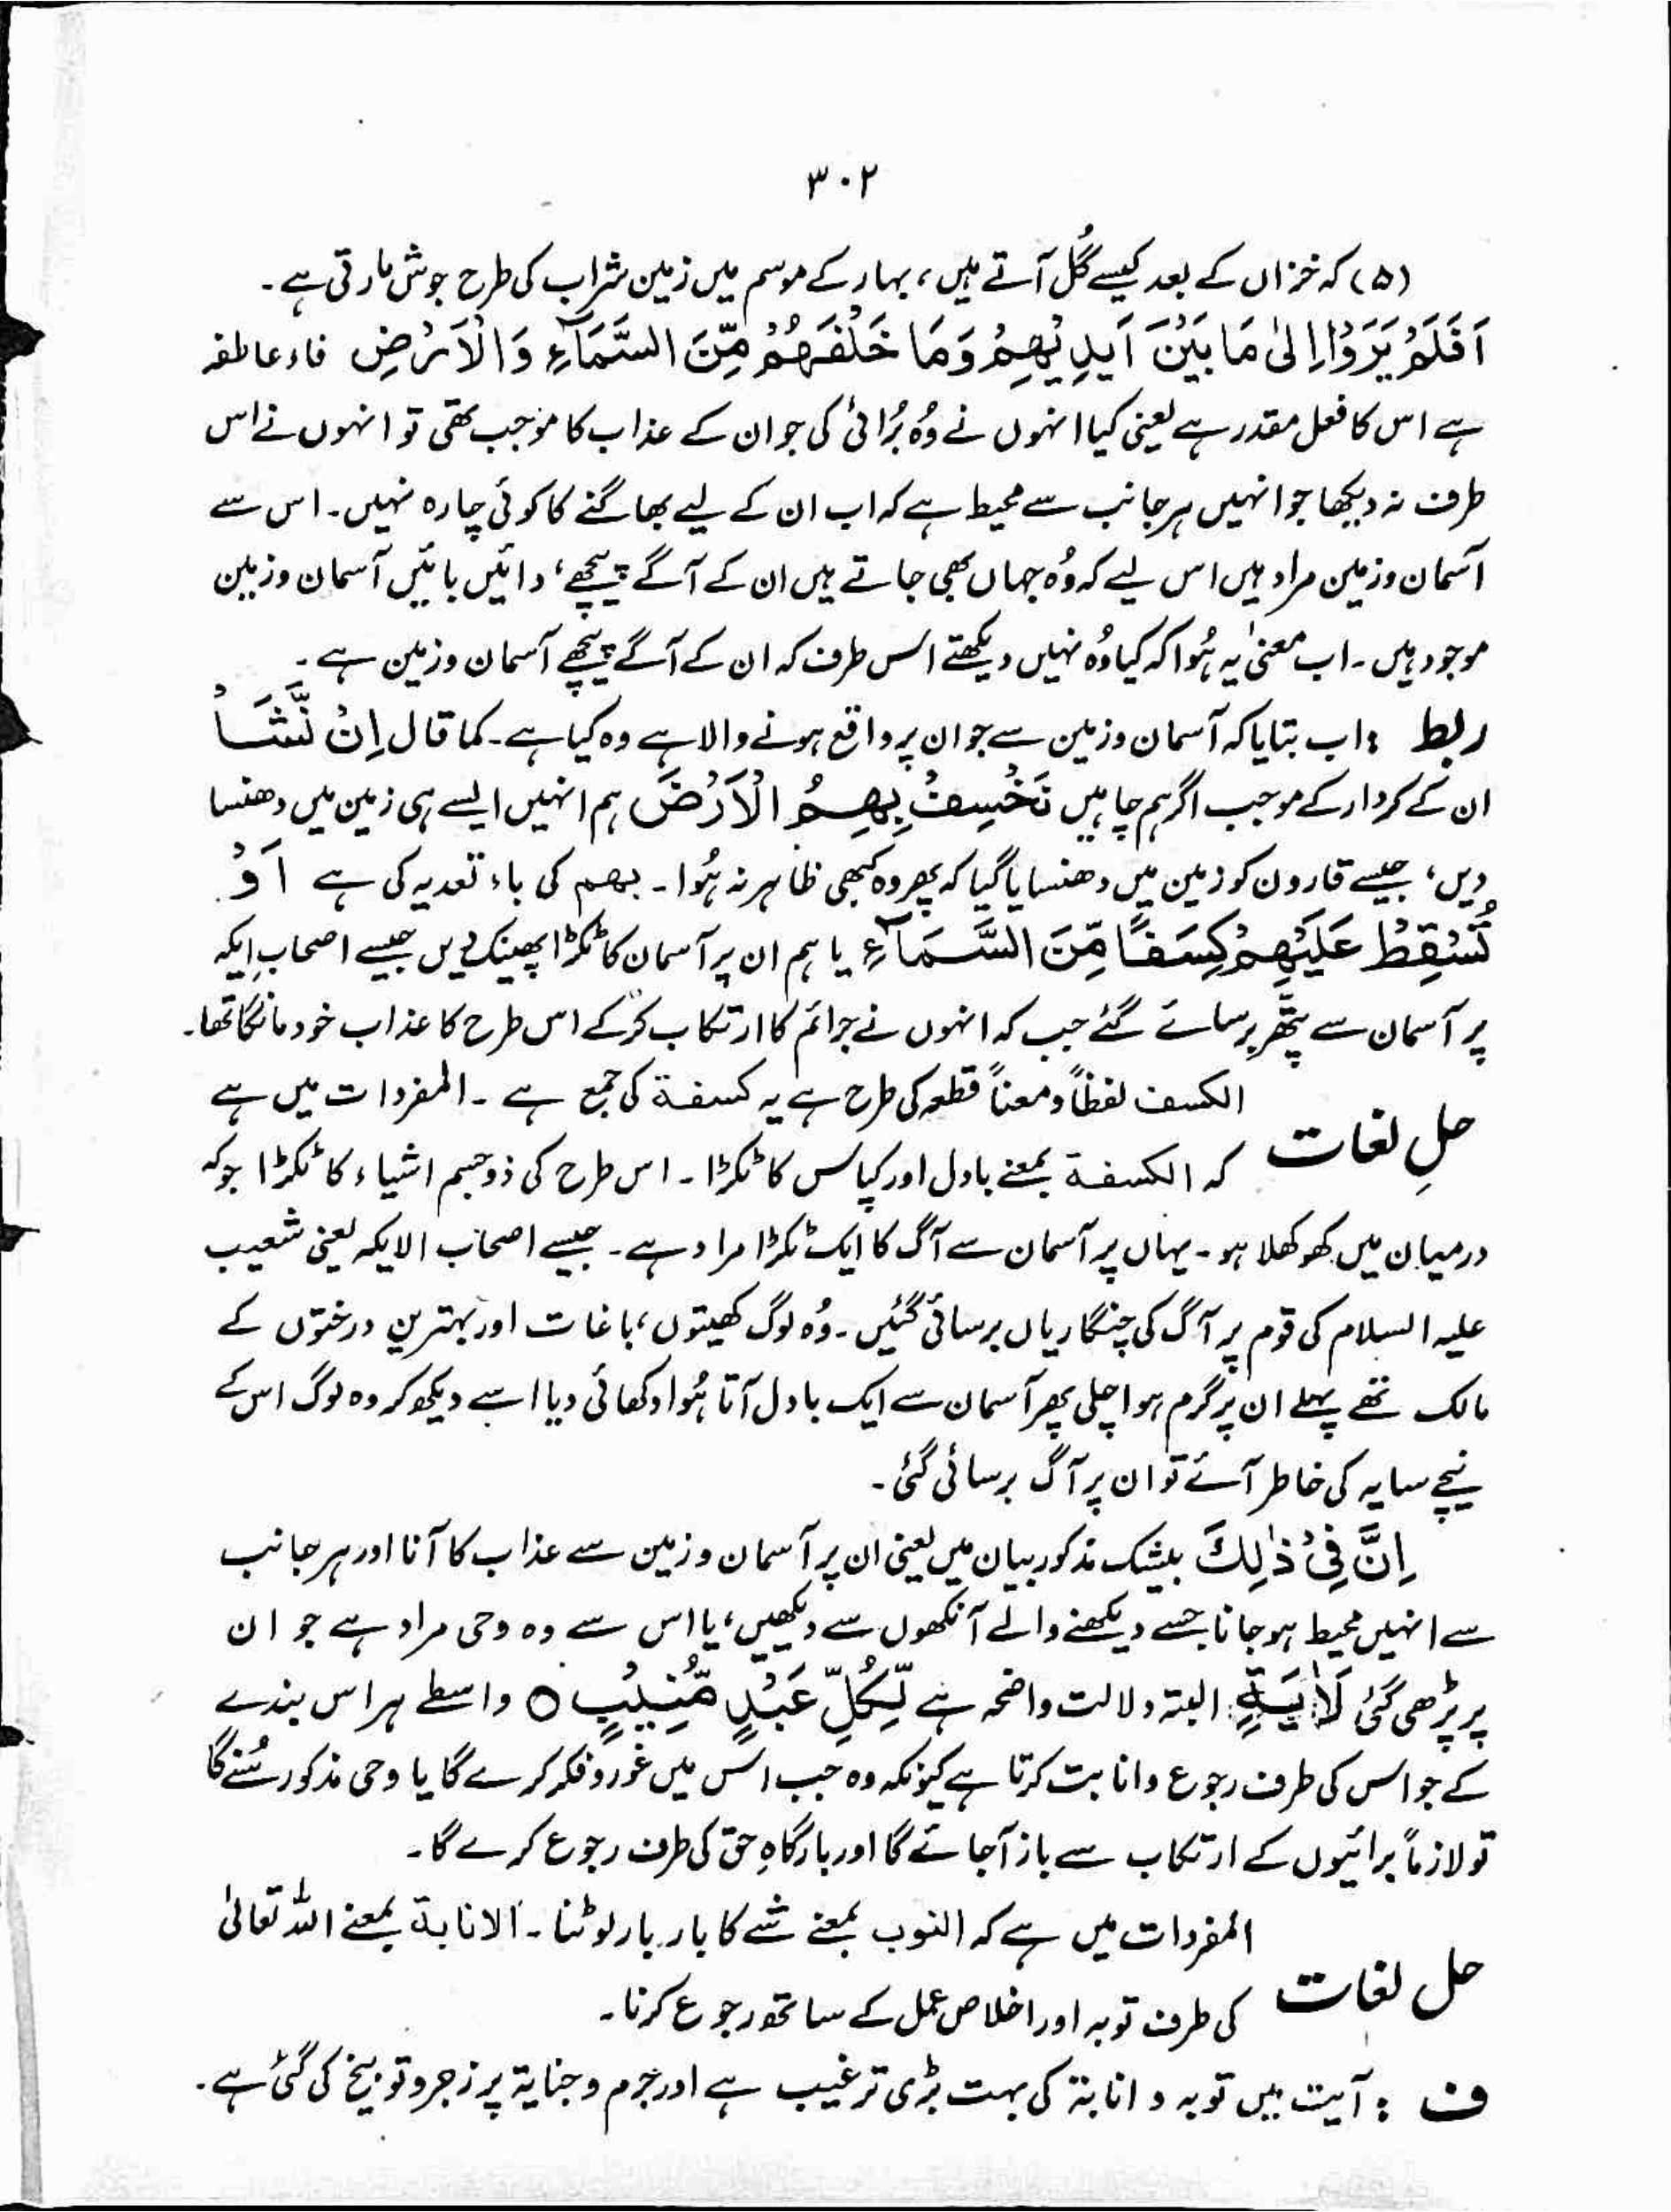 ۳۰۲
(۵) کہ خزاں کے بعد کیسے گُل آتے ہیں، بہار کے موسم میں زمین شراب کی طرح جوش مارتی ہے۔
اَفَلَمْ یَرَوْا اِلیٰ مَا بَیْنَ اَیْدِیْهِمْ وَمَا خَلْفَهُمْ مِّنَ السَّمَآءِ وَالْاَرْضِ فاء عاطفہ
ہے اس کا فعل مقدر ہے یعنی کیا انہوں نے وُہ بُرائی کی جو ان کے عذاب کا موجب تھی تو انہوں نے اس
طرف نہ دیکھا جو انہیں ہر جانب سے محیط ہے کہ اب ان کے لیے بھاگنے کا کوئی چارہ نہیں۔ اس سے
آسمان و زمین مراد ہیں اس لیے کہ وُہ جہاں بھی جاتے ہیں ان کے آگے پیچھے، دائیں بائیں آسمان و زمین
موجود ہیں۔ اب معنیٰ یہ ہُوا کہ کیا وُہ نہیں دیکھتے اس طرف کہ ان کے آگے پیچھے آسمان و زمین ہے۔
ربط : اب بتایا کہ آسمان و زمین سے جو ان پر واقع ہونے والا ہے وہ کیا ہے۔ کما قال اِنْ نَّشَاْ
ان کے کردار کے موجب اگر ہم چاہیں نَخْسِفْ بِهِمُ الْاَرْضَ ہم انہیں ایسے ہی زمین میں دھنسا
دیں، جیسے قارون کو زمین میں دھنسایا گیا کہ پھر وہ کبھی ظاہر نہ ہُوا۔ بھم کی باء تعدیہ کی ہے اَوْ
نُسْقِطْ عَلَیْهِمْ کِسَفًا مِّنَ السَّمَآءِ یا ہم ان پر آسمان کا ٹکڑا پھینک دیں جیسے اصحابِ ایکہ
پر آسمان سے پتّھر برسائے گئے جب کہ انہوں نے جرائم کا ارتکاب کرکے اس طرح کا عذاب خود مانگا تھا۔
حلِ لغات الکسف لفظاً و معناً قطعہ کی طرح ہے یہ کسفة کی جمع ہے۔ المفردات میں ہے
کہ الکسفة بمعنے بادل اور کپاس کا ٹکڑا۔ اس طرح کی ذو جسم اشیاء کا ٹکڑا جو کہ
درمیان میں کھوکھلا ہو۔ یہاں پر آسمان سے آگ کا ایک ٹکڑا مراد ہے۔ جیسے اصحاب الایکہ یعنی شعیب
علیہ السلام کی قوم پر آگ کی چنگاریاں برسائی گئیں۔ وُہ لوگ کھیتوں، باغات اور بہترین درختوں کے
مالک تھے پہلے ان پر گرم ہوا چلی پھر آسمان سے ایک بادل آتا ہُوا دکھائی دیا اسے دیکھ کر وہ لوگ اس کے
نیچے سایہ کی خاطر آئے تو ان پر آگ برسائی گئی۔
اِنَّ فِیْ ذٰلِكَ بیشک مذکور بیان میں یعنی ان پر آسمان و زمین سے عذاب کا آنا اور ہر جانب
سے انہیں محیط ہو جانا جسے دیکھنے والے آنکھوں سے دیکھیں، یا اس سے وہ وحی مراد ہے جو ان
پر پڑھی گئی لَاٰیَةً البتہ دلالت واضحہ ہے لِّکُلِّ عَبْدٍ مُّنِیْبٍ ○ واسطے ہر اس بندے
کے جو اس کی طرف رجوع و انابت کرتا ہے کیونکہ وہ جب اس میں غور و فکر کرے گا یا وحی مذکور سُنے گا
تو لازماً برائیوں کے ارتکاب سے باز آجائے گا اور بارگاہِ حق کی طرف رجوع کرے گا۔
حل لغات المفردات میں ہے کہ النوب بمعنے شے کا بار بار لوٹنا۔ الانابة بمعنے اللہ تعالیٰ
کی طرف توبہ اور اخلاصِ عمل کے ساتھ رجوع کرنا۔
ف : آیت میں توبہ و انابۃ کی بہت بڑی ترغیب ہے اور جرم و جنایۃ پر زجر و توبیخ کی گئی ہے۔